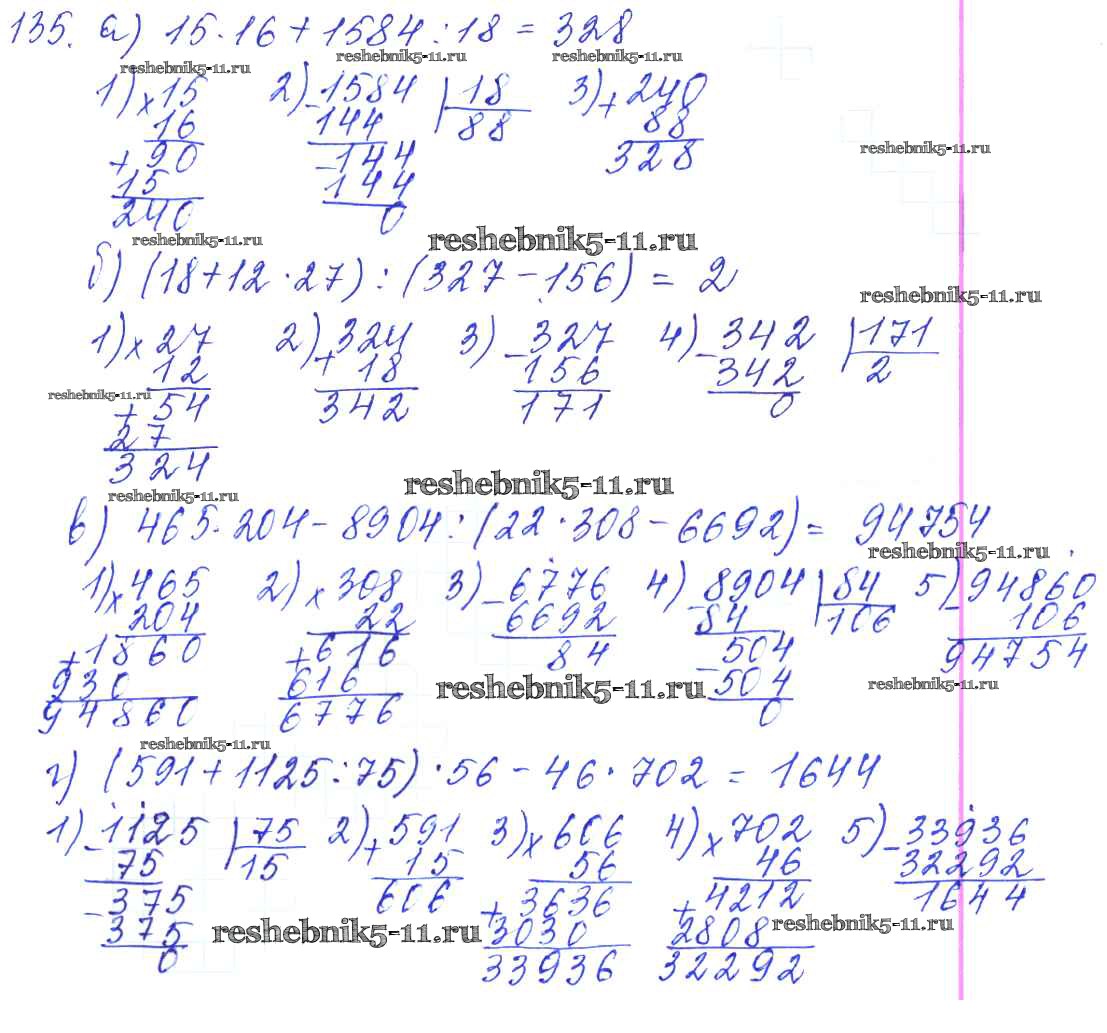 135. а) 15·16+1584:18=328
reshebnik5-11.ru reshebnik5-11.ru reshebnik5-11.ru
1) × 15 2) - 1584 | 18 3) + 240
16 144 88 88
+ 90 - 144 328 reshebnik5-11.ru
15 144
240 0
reshebnik5-11.ru reshebnik5-11.ru
б) (18+12·27):(327-156)=2
reshebnik5-11.ru
1) × 27 2) + 324 3) - 327 4) - 342 | 171
12 18 156 342 2
reshebnik5-11.ru
+ 54 342 171 0
27
324
reshebnik5-11.ru reshebnik5-11.ru
в) 465·204-8904:(22·308-6692)=94754
reshebnik5-11.ru
1) × 465 2) × 308 3) - 6776 4) - 8904 | 84 5) - 94860
204 22 6692 84 106 106
+ 1860 + 616 84 - 504 94754
930 616 504
94860 6776 0
reshebnik5-11.ru reshebnik5-11.ru
reshebnik5-11.ru
г) (591+1125:75)·56-46·702=1644
1) - 1125 | 75 2) + 591 3) × 606 4) × 702 5) - 33936
75 15 15 56 46 32292
- 375 606 + 3636 + 4212 1644
375 3030 2808
0 33936 32292
reshebnik5-11.ru reshebnik5-11.ru